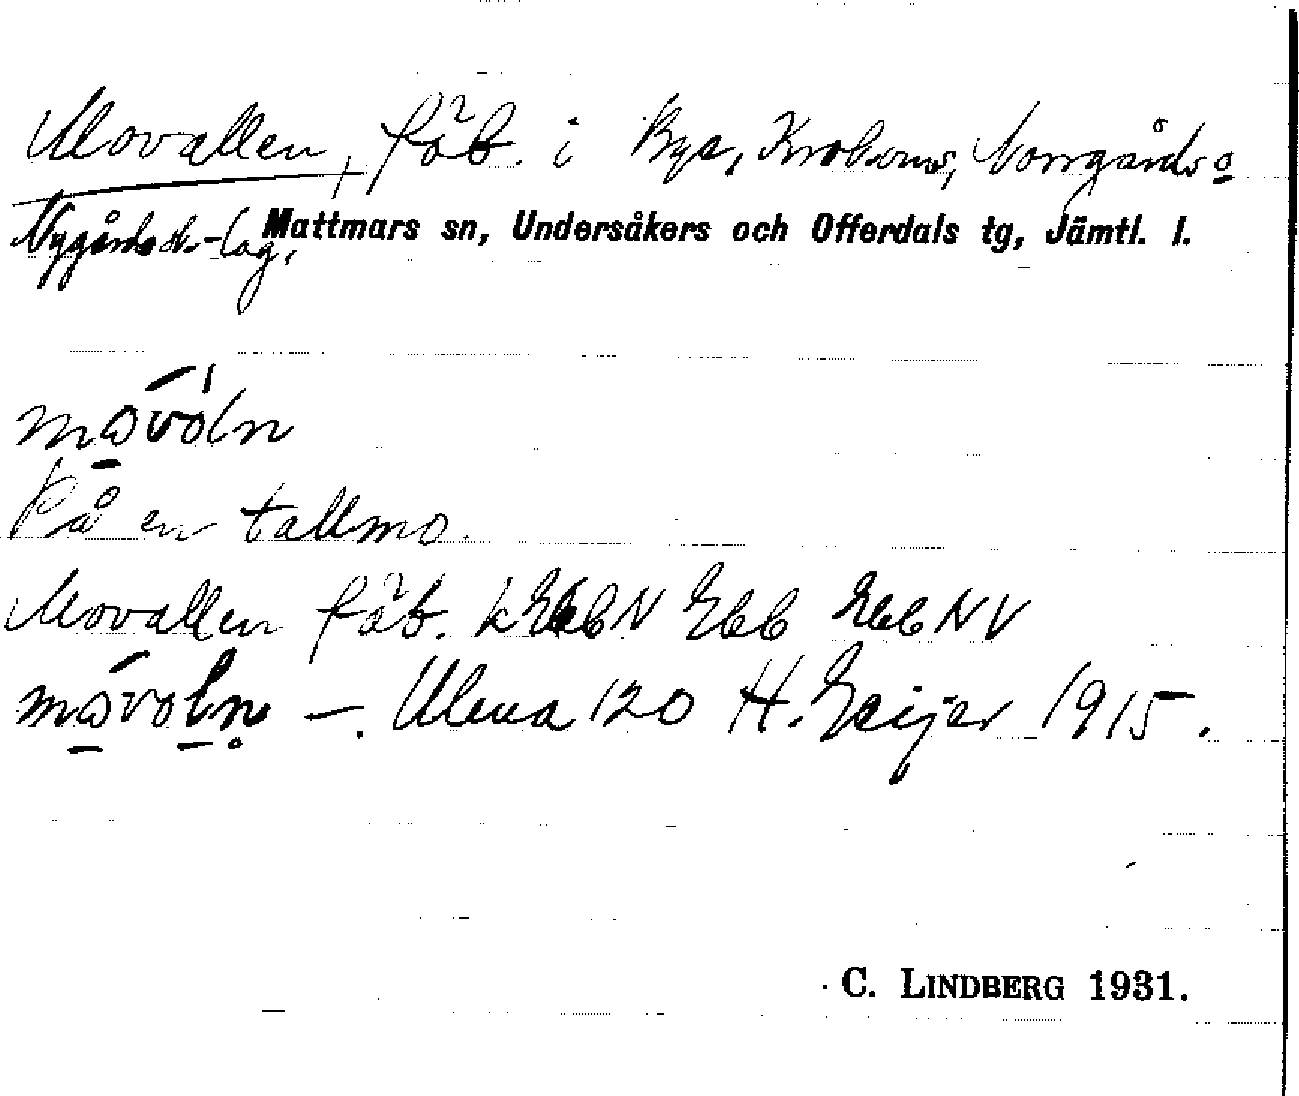 Movallen, fäb. i Bye, Krokoms, Norrgårds o
Nygårds sk.-lag, Mattmars sn, Undersåkers och Offerdals tg, Jämtl. l.
mo̱vóln
På en tallmo.
Movallen fäb. k NV
mo̱vo̱ln̥ —. Ulma 120 H. Geijer 1915.
C. LINDBERG 1931.